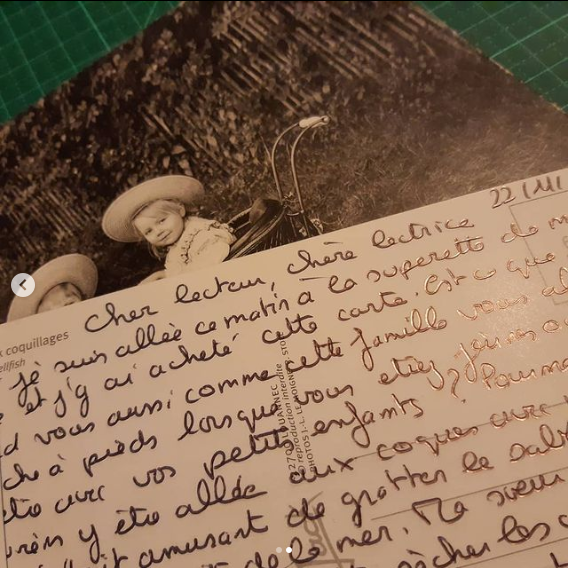 22/11/
cher lecteur, chère lectrice
je suis allée ce matin à la superette de m
et j'y ai acheté cette carte. Est ce que
vous aussi comme cette famille vous al
à pieds lorsque vous étiez jeunes ou
avec vos petits enfants ? Pour ma
y été allée aux coques avec
amusant de gratter le sabl
de la mer. Ma soeur
pêcher les
x coquillages
ellfish
NEC
reproduction interdite
PHOTOS J.-L.